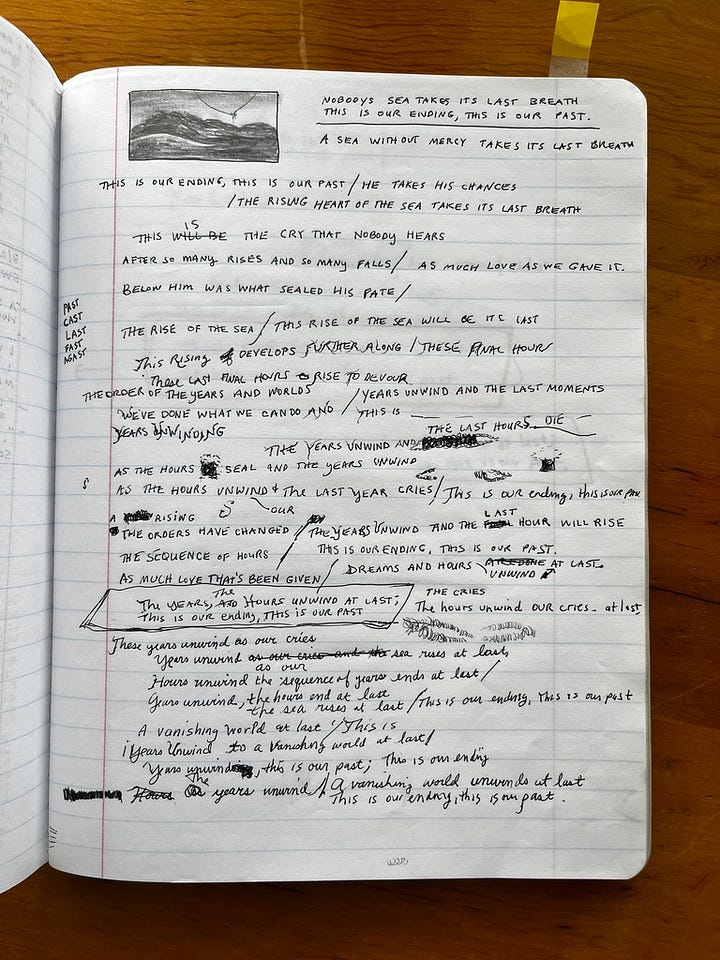 NOBODYS SEA TAKES ITS LAST BREATH
THIS IS OUR ENDING, THIS IS OUR PAST.
A SEA WITHOUT MERCY TAKES ITS LAST BREATH
THIS IS OUR ENDING, THIS IS OUR PAST / HE TAKES HIS CHANCES
/ THE RISING HEART OF THE SEA TAKES ITS LAST BREATH
IS
THIS WILL BE THE CRY THAT NOBODY HEARS
AFTER SO MANY RISES AND SO MANY FALLS / AS MUCH LOVE AS WE GAVE IT.
BELOW HIM WAS WHAT SEALED HIS FATE /
PAST
CAST
LAST
FAST
AGAST
THE RISE OF THE SEA / THIS RISE OF THE SEA WILL BE ITS LAST
This Rising DEVELOPS FURTHER ALONG / THESE FINAL HOUR
These LAST FINAL HOURS RISE TO DEVOUR
THE ORDER OF THE YEARS AND WORLDS / YEARS UNWIND AND THE LAST MOMENTS
WE'VE DONE WHAT WE CAN DO AND / THIS IS
YEARS UNWINDING THE LAST HOURS DIE
THE YEARS UNWIND AND
AS THE HOURS SEAL AND THE YEARS UNWIND
S AS THE HOURS UNWIND & The LAST YEAR CRIES / This is our ending, this is our past
A RISING S OUR LAST
THE ORDERS HAVE CHANGED / THE YEARS UNWIND AND THE HOUR WILL RISE
THE SEQUENCE OF HOURS / THIS IS OUR ENDING, THIS IS OUR PAST.
AS MUCH LOVE THAT'S BEEN GIVEN / DREAMS AND HOURS ARE DONE AT LAST.
UNWIND
The
The YEARS, AND HOURS UNWIND AT LAST;
THIS IS OUR ending, THIS IS OUR PAST
THE CRIES
The hours unwind OUR cries - at last
These years unwind as our cries
Years unwind as our cries and the sea rises at last
as our
Hours unwind the sequence of years ends at last /
Years unwind, the hours end at last
the sea rises at last / This is our ending, This is our past
A vanishing world at last / This is
Years Unwind to a Vanishing world at last /
Years unwind, this is our past; This is our ending
The
Hours years unwind / A vanishing world unwinds at last
This is our ending, this is our past.